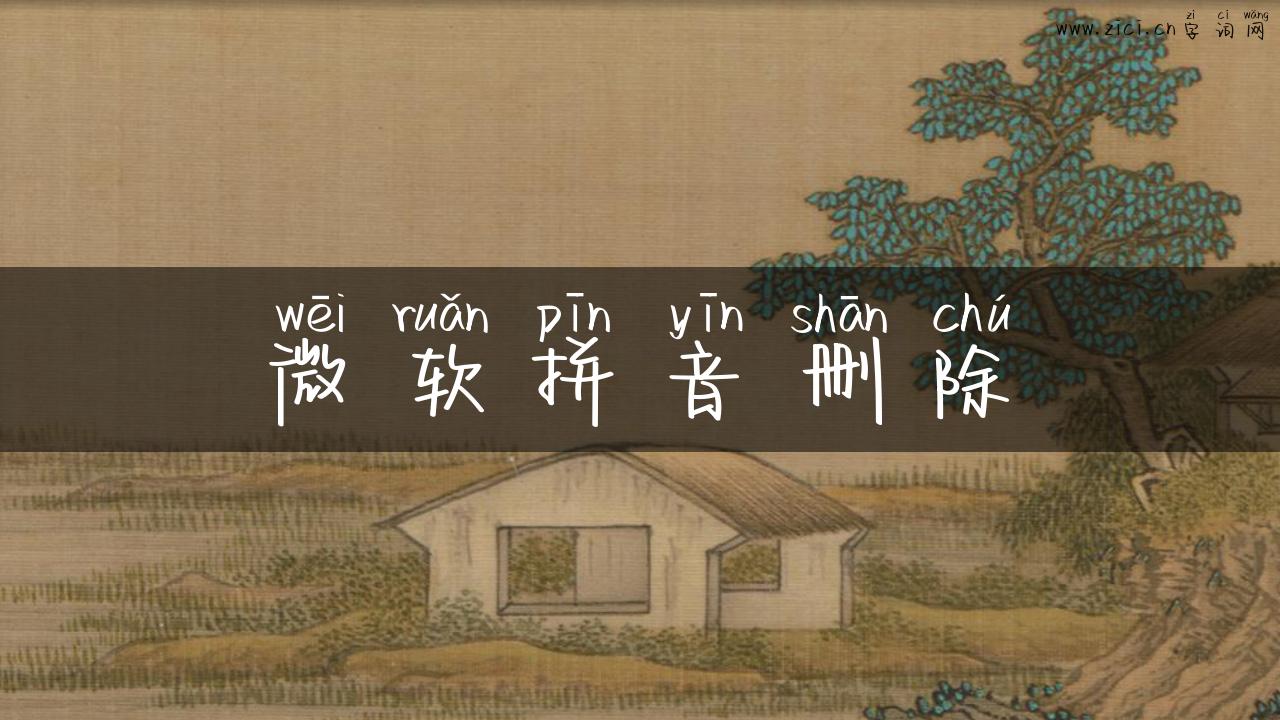 zì cí wǎng
www.zici.cn 字词网
wēi ruǎn pīn yīn shān chú
微软拼音删除